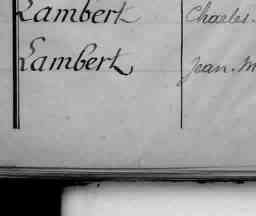 Lambert Charles.
Lambert Jean. M